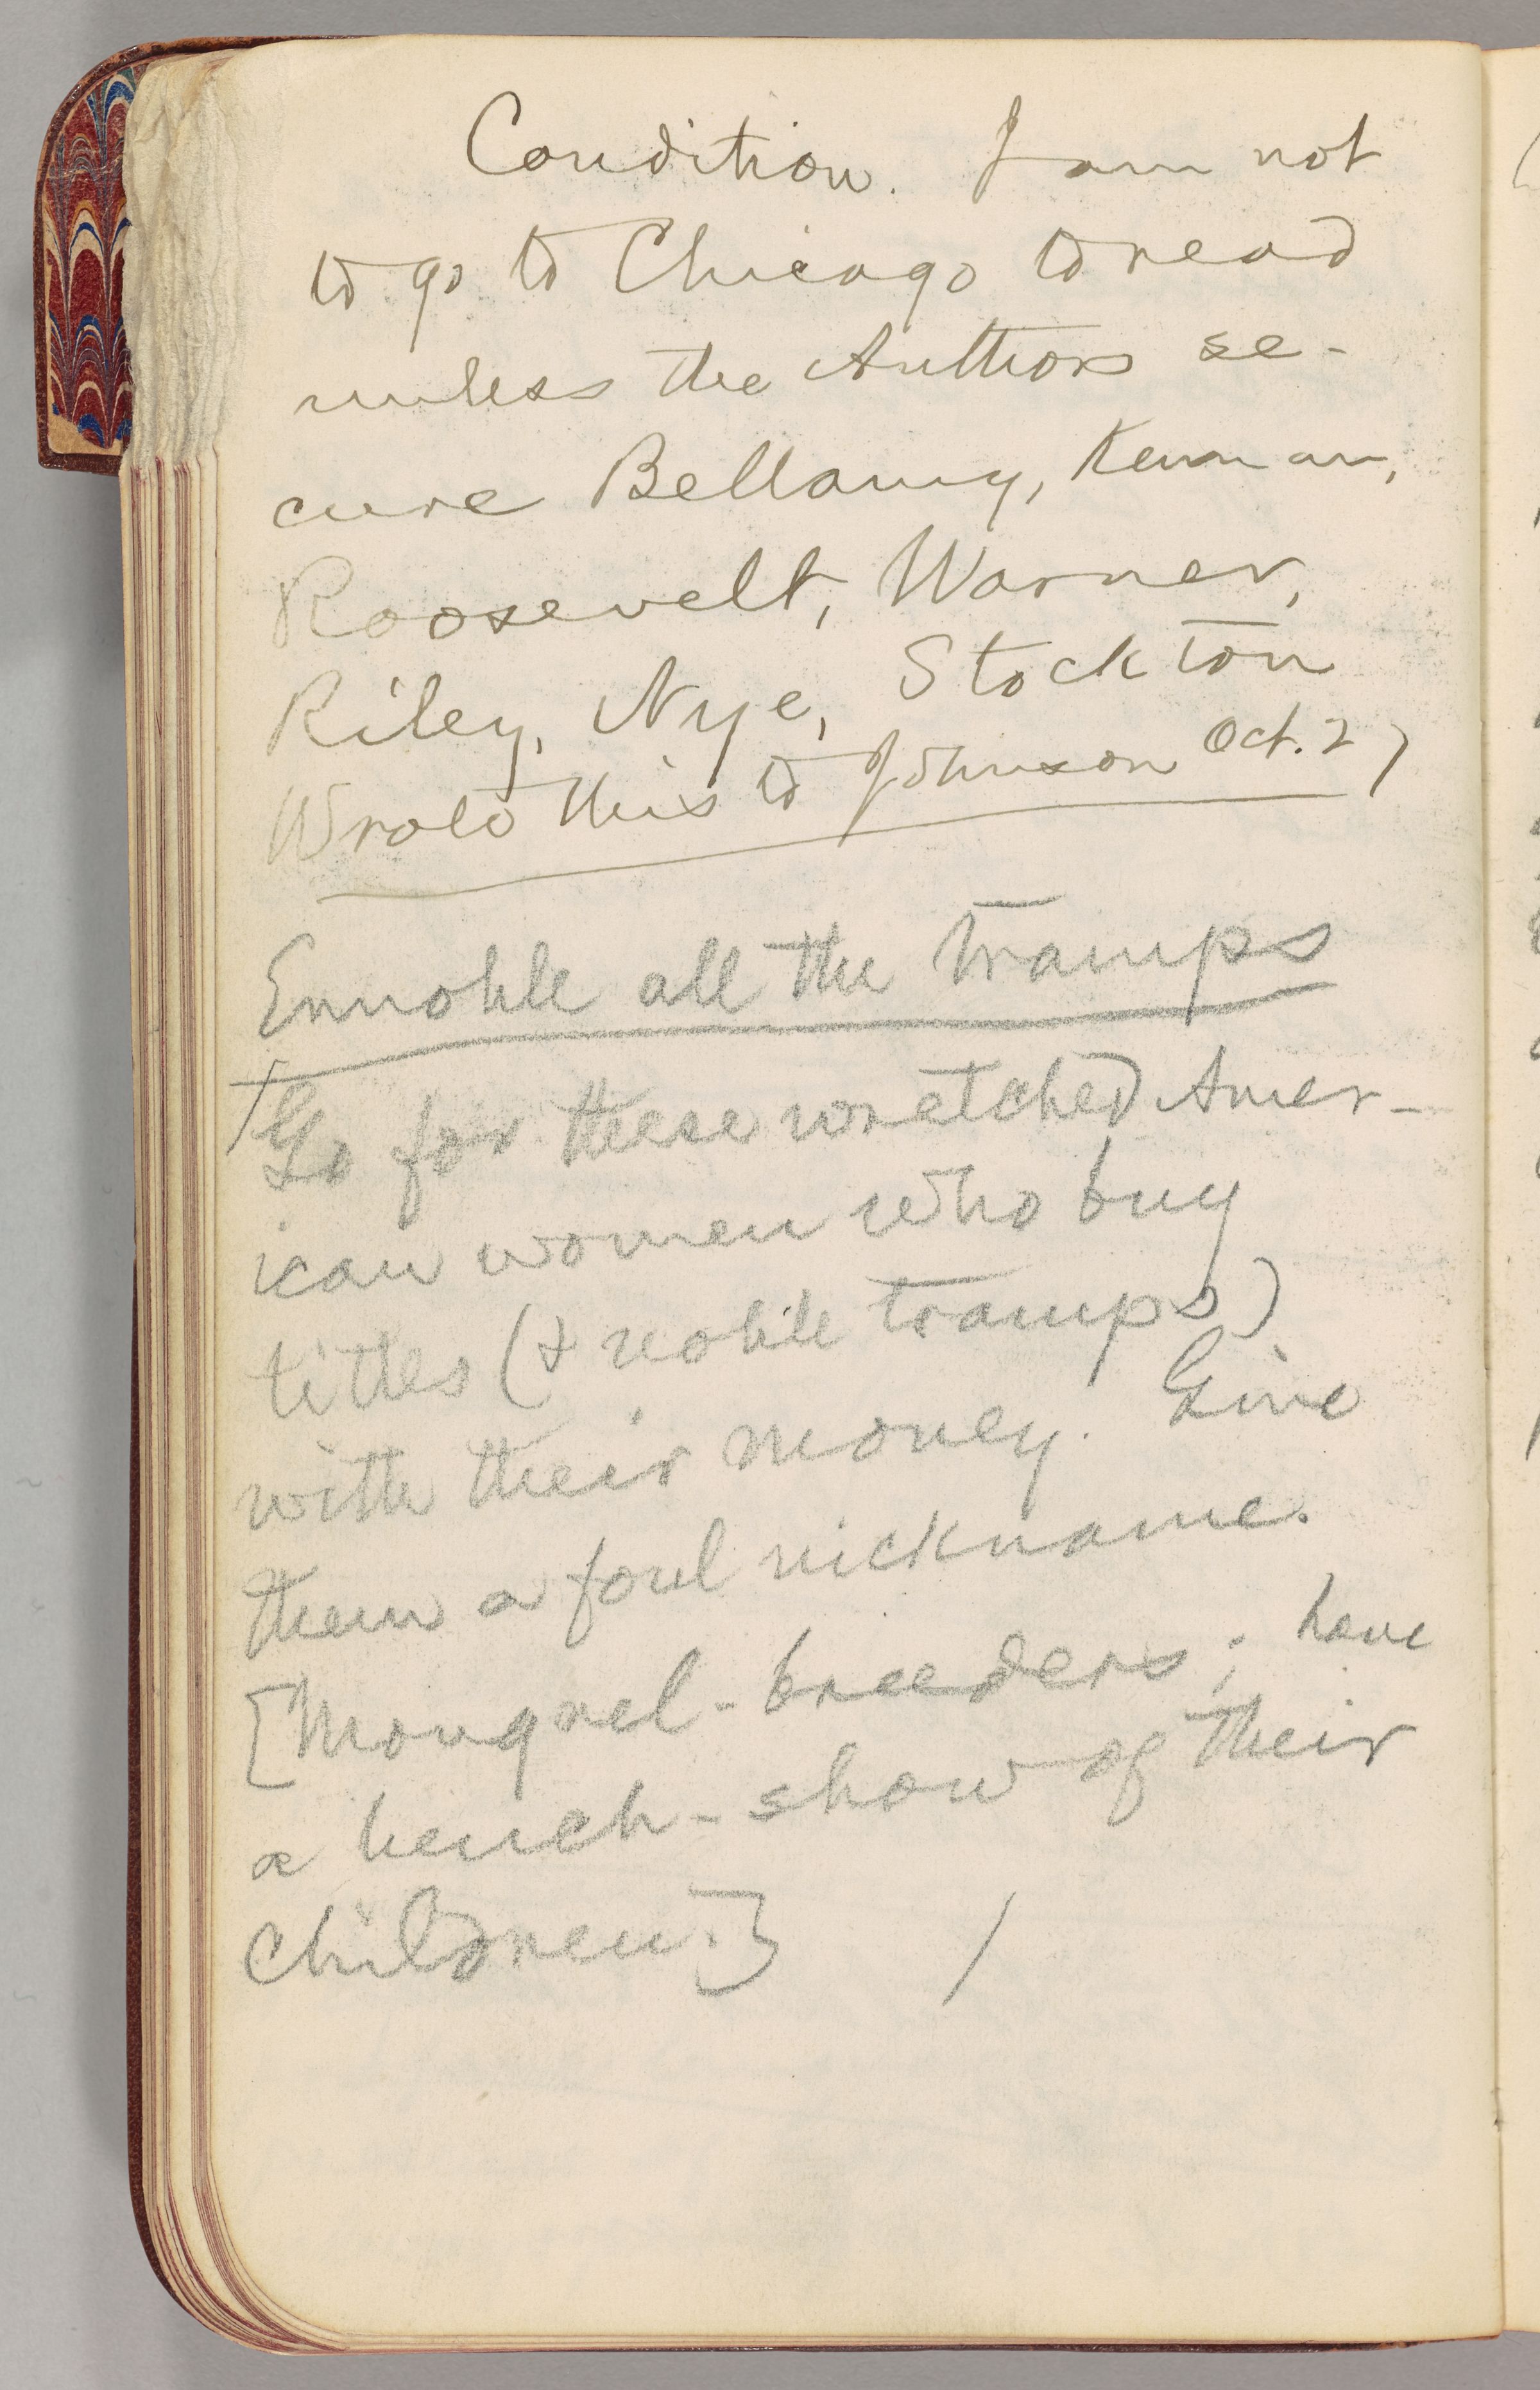 Condition. I am not
to go to Chicago to read
unless the Authors se-
cure Bellamy, Kennan,
Roosevelt, Warner,
Riley, Nye, Stockton
Wrote this to Johnson Oct. 2)
Ennoble all the tramps
Go for these wretched Amer-
ican women who buy
titles (& noble tramps)
with their money. Give
them a foul nickname.
[Mongrel-breeders; have
a bench-show of their
children.]